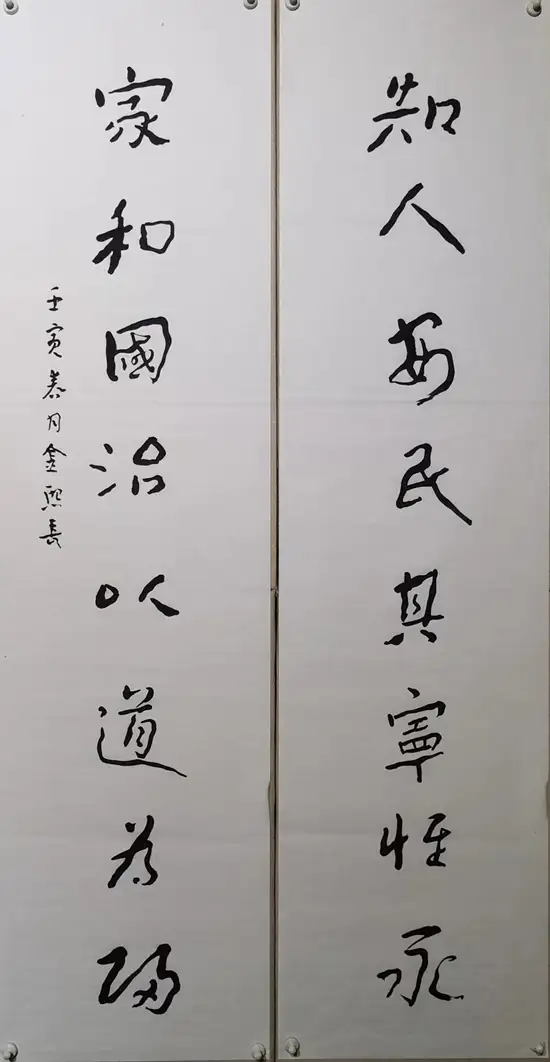 知人安民其寧惟永
家和國治以道為歸
壬寅春月金熙長